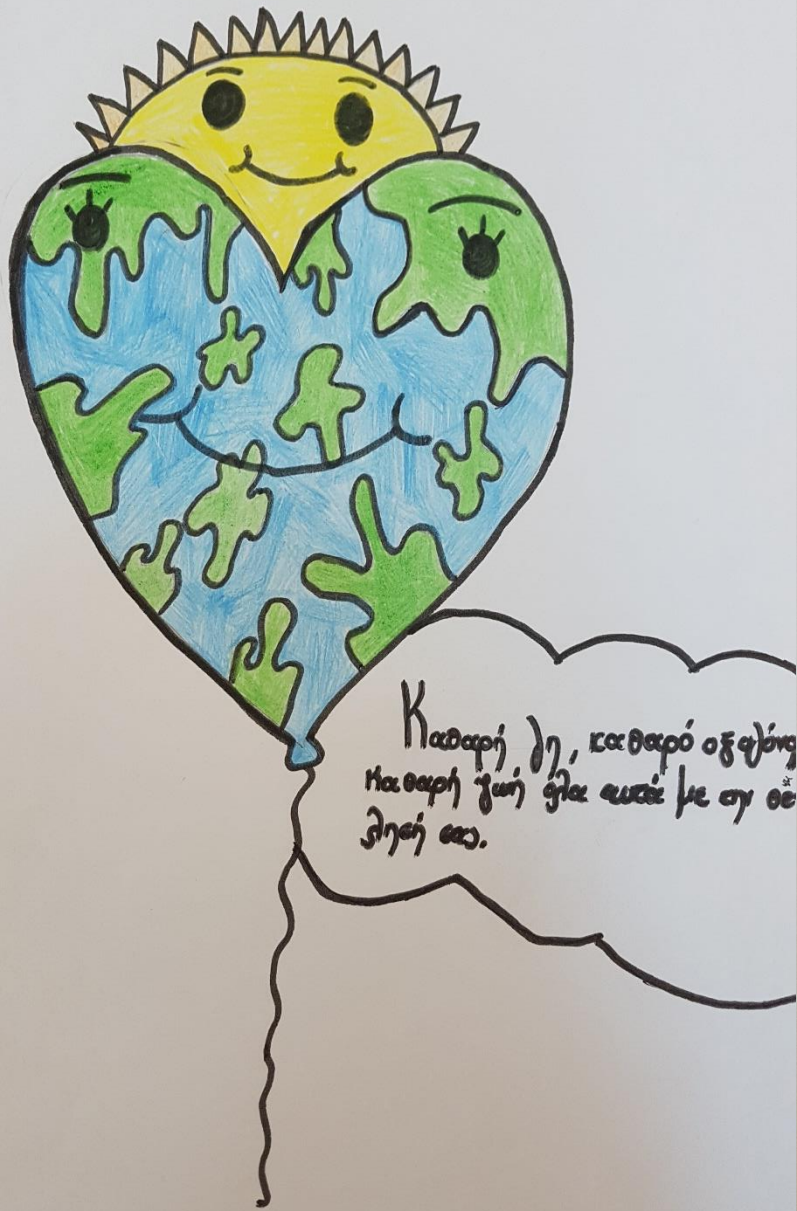 Καθαρή γη, καθαρό οξυγόνο
καθαρή ζωή όλα αυτά με την θέ
λησή σας.